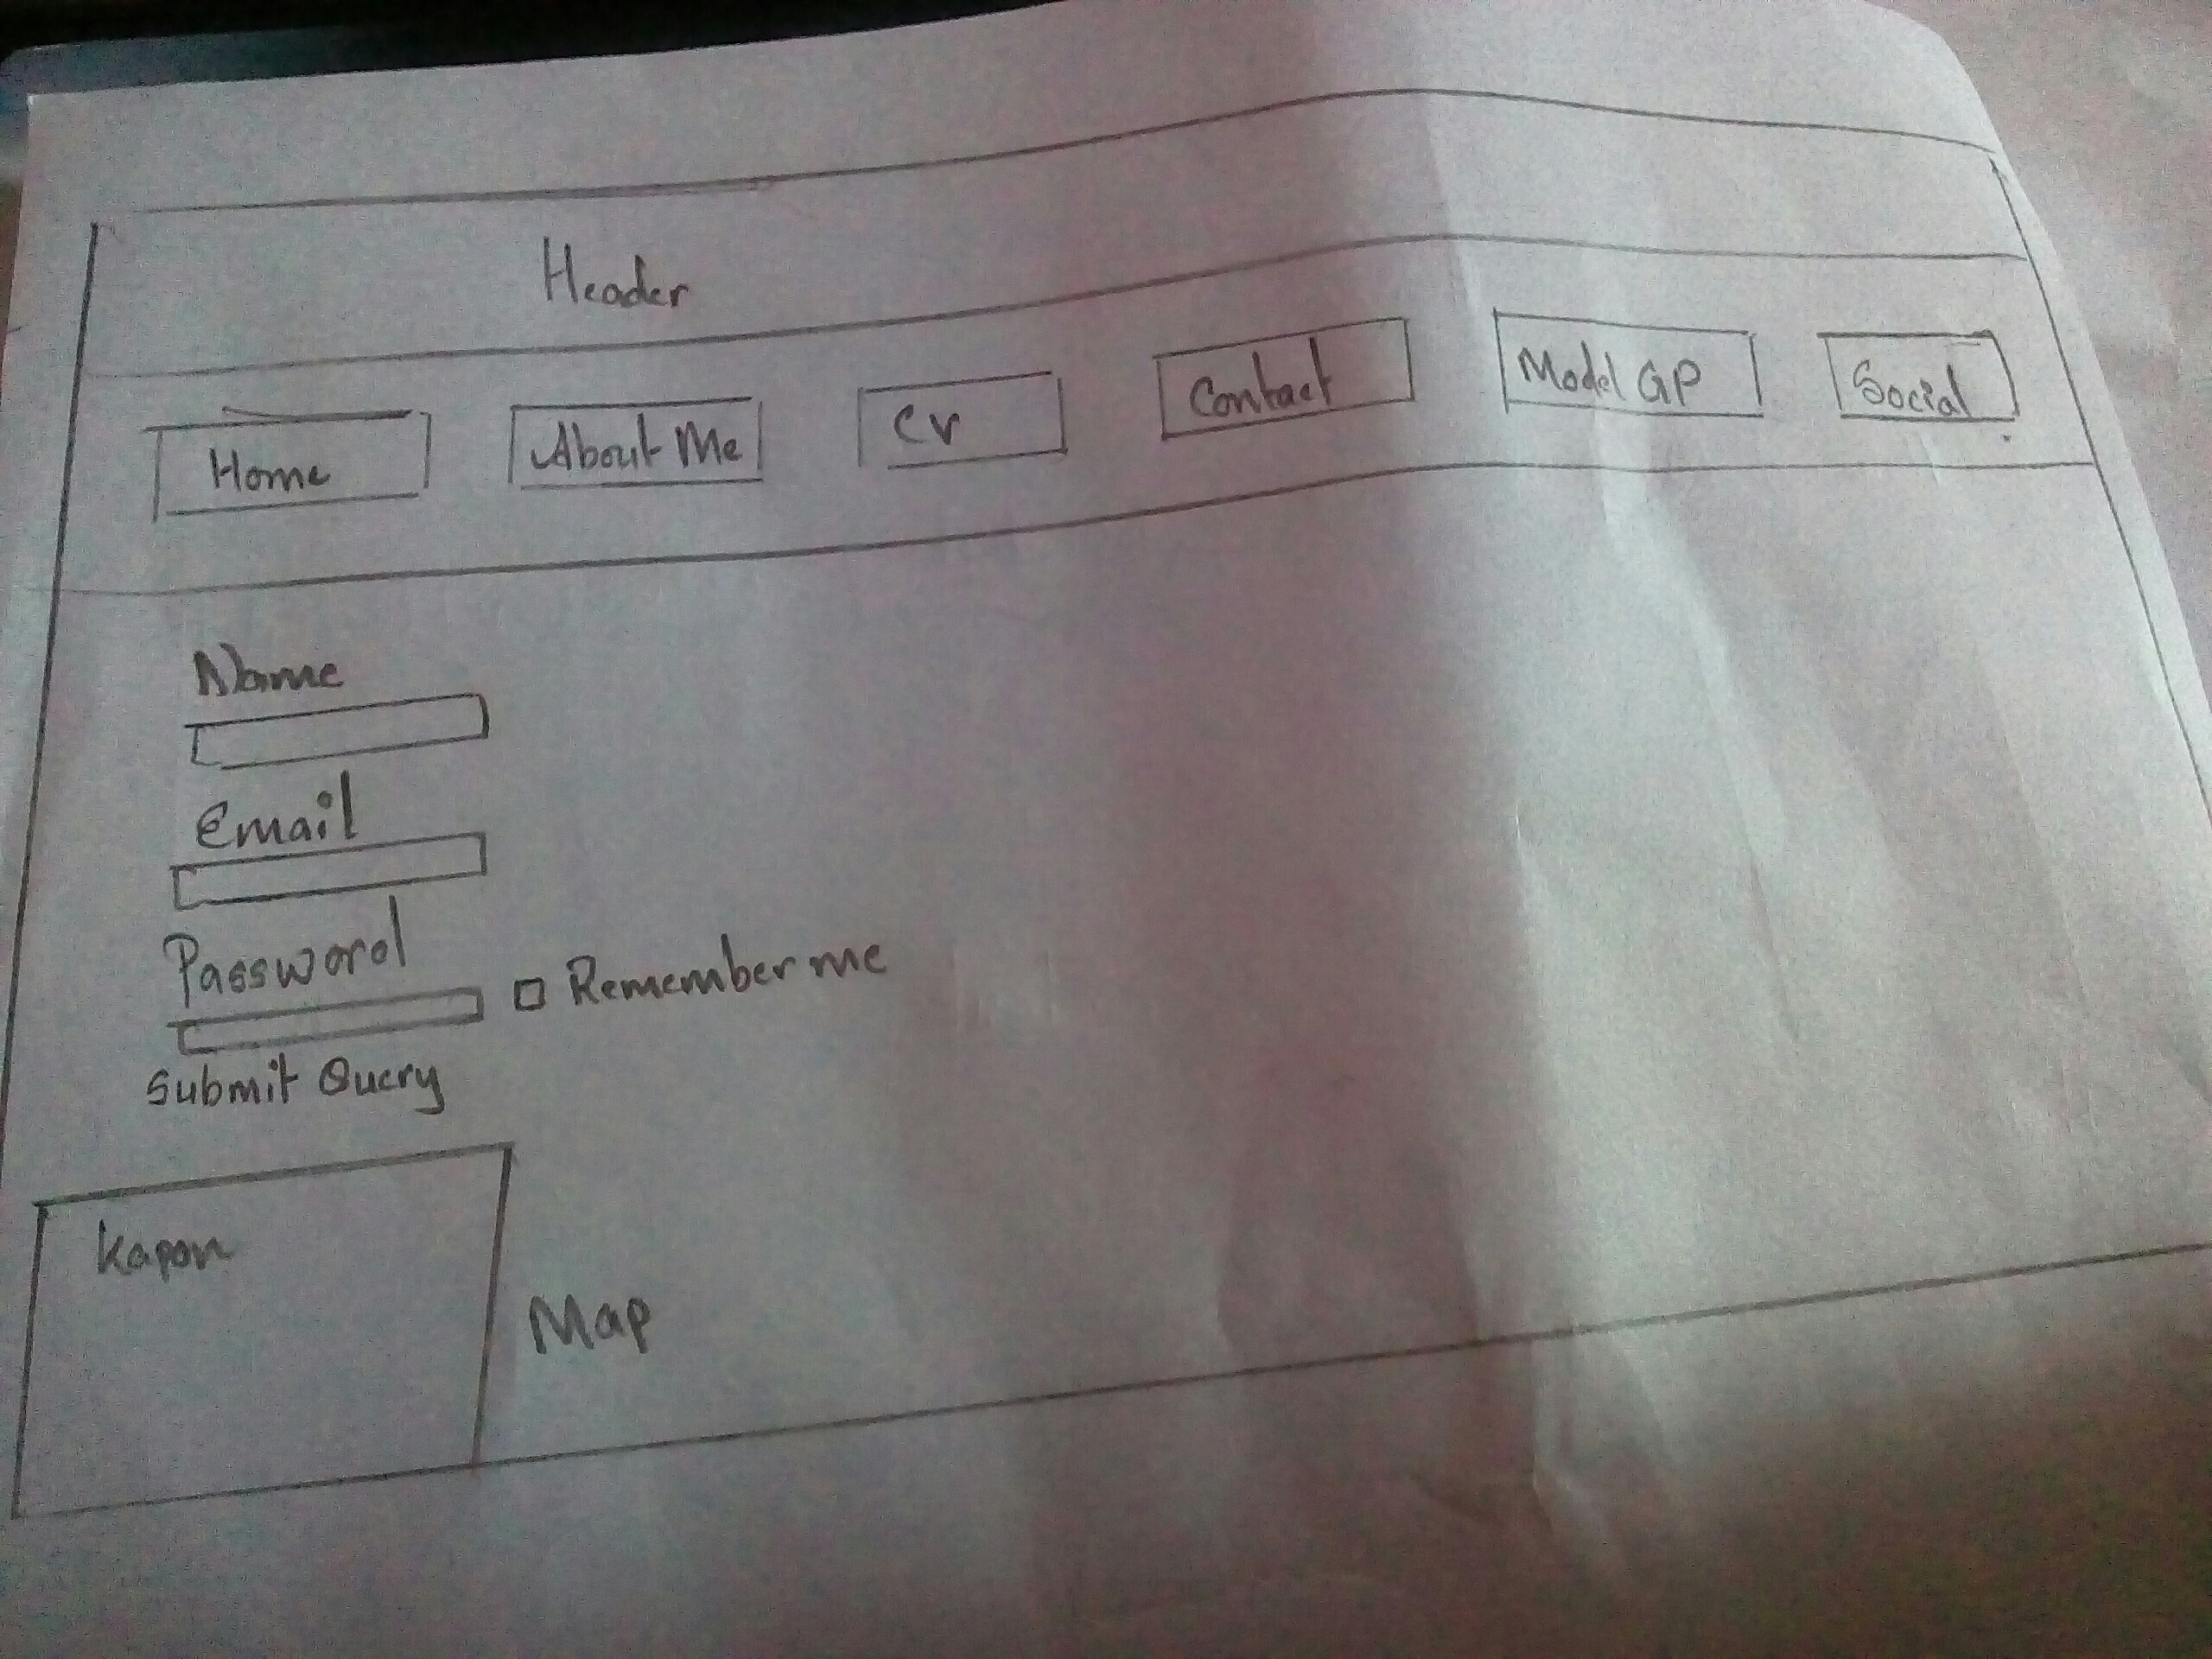 Header
Home About Me CV Contact Model GP Social
Name
Email
Password
Remember me
Submit Query
Kapan
Map